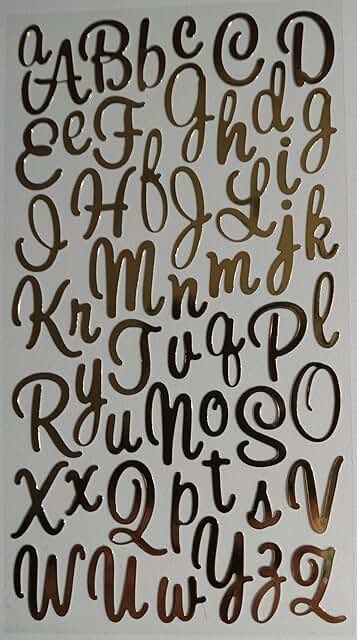 a A B b c C D
E e F G h d g
I H f J L i j k
K r M n m l
R y T v q P
u N o S O
X x Q p t s V
W U w y z Z